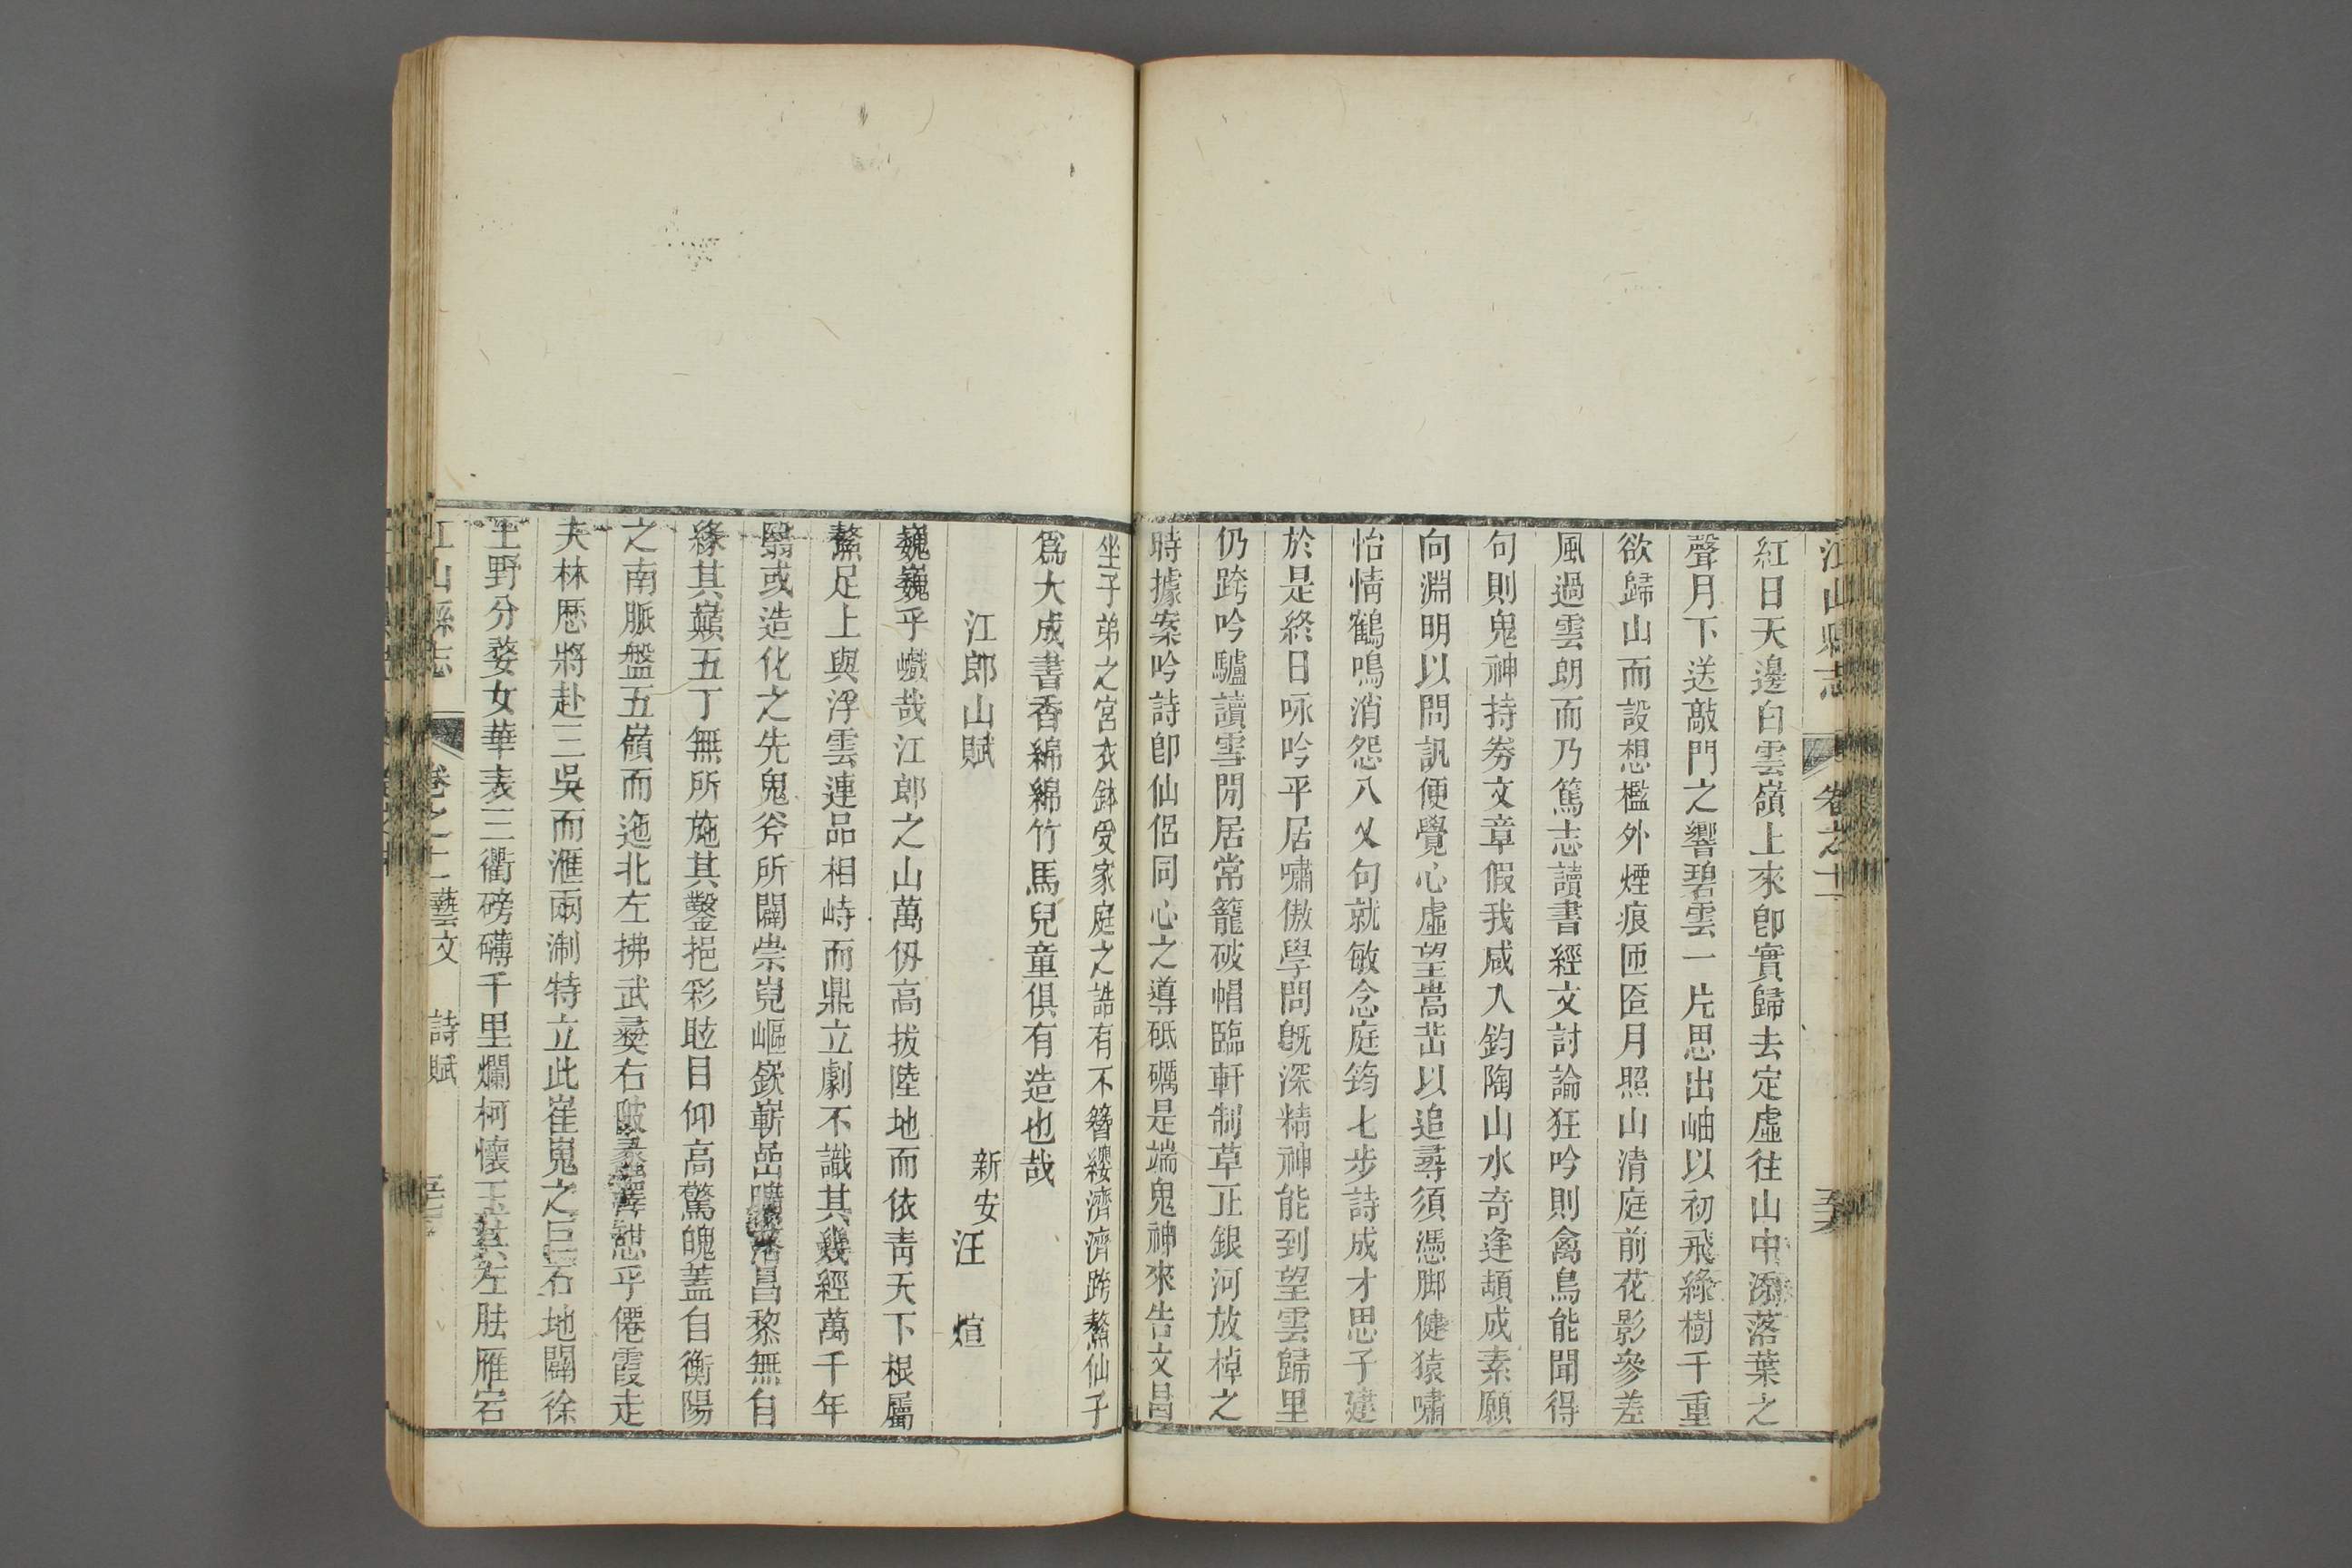 江山縣志 卷之十一
紅日天邊白雲嶺上來卽實歸去定虛往山中潑落葉之
聲月下送敲門之響碧雲一片思出岫以初飛綠樹千重
欲歸山而設想檻外煙痕匝匼月照山清庭前花影參差
風過雲朗而乃篤志讀書經文討論狂吟則禽鳥能聞得
句則鬼神持劵文章假我咸入鈞陶山水奇逢頡成素願
向淵明以問訊便覺心虛望嵩岀以追尋須憑脚健猿嘯
怡情鶴鳴消怨八乂句就敏念庭筠七步詩成才思子建
於是終日咏吟平居嘯傲學問旣深精神能到望雲歸里
仍跨吟驢讀雪閒居常籠破帽臨軒制草正銀河放棹之
時據案吟詩卽仙侶同心之導砥礪是端鬼神來告文昌
坐子弟之宮衣鉢受家庭之誥有不簪纓濟濟跨鰲仙子
爲大成書香綿綿竹馬兒童俱有造也哉
江郎山賦
新安汪 煊
巍巍乎巇哉江郎之山萬仭高拔陸地而依靑天下根屬
鰲足上與浮雲連品相峙而鼎立劇不識其幾經萬千年
翳或造化之先鬼斧所闢崇㠥嶇嶔嶄嵒落昌黎無自
緣其巓五丁無所施其鑿挹彩眩目仰高驚魄蓋自衡陽
之南脈盤五嶺而迤北左拂武夔右彭蠡澤憇乎僊霞走
夫林厯將赴三吳而滙兩淛特立此崔嵬之巨石地闢徐
王野分婺女華表三衢磅礴千里爛柯懷玉其左胠雁宕
江山縣志 卷之十一藝文 詩賦